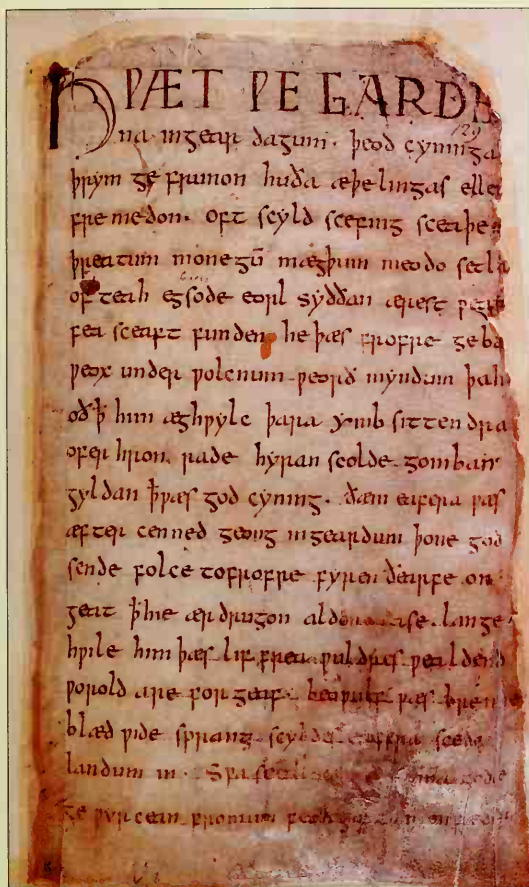 HǷÆT ǷE GARDE
129
na ingear dagum. þeod cyninga
þrym ge frunon huða æþelingas elle
fremedon. oft scyld scefing sceaþe
þreatum monegū mægþum meodo setla
of teah egsode eorl syððan ærest ƿear
fea sceaft funden he þæs frofre geba
ƿeox under ƿolcnum ƿeorð myndum þah
oð ꝥ him æghƿylc þara ymb sittendra
ofer hron rade hyran scolde gomban
gyldan ꝥ ƿæs god cyning. ðæm eafera ƿæs
æfter cenned geong ingeardum þone god
sende folce tofrofre fyren ðearfe on
geat ꝥ hie ær drugon aldor ase. lange
hƿile him þæs lif frea ƿuldres ƿealdend
ƿorold are for geaf. beoƿulf ƿæs breme
blæd ƿide sprang scyldes eafera scede
landum in. Sƿa sceal
ge ƿyrcean fromum feoh giftum on